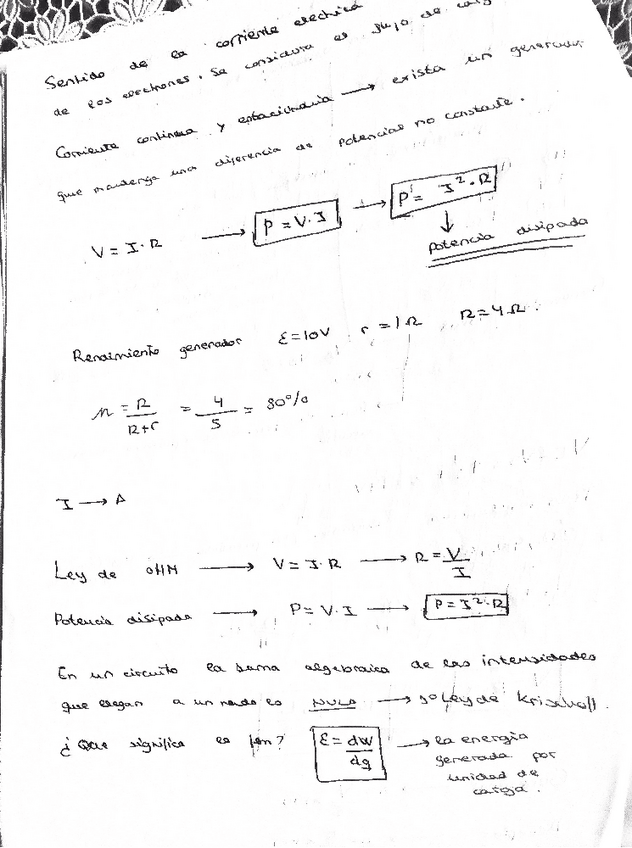 Sentido de la corriente electrica
de los electrones. Se considera el flujo de
Corriente continua y estacionaria → exista un generador
que mantenga una diferencia de potencias no constante.
V = I · R → P = V · I → P = I² · R
↓
potencia disipada
Rendimiento generador ε = 10V r = 1Ω R = 4Ω.
n = R/R+r = 4/5 = 80%
I → A
Ley de OHM → V = I · R → R = V/I
Potencia disipada → P = V · I → P = I² · R
En un circuito la suma algebraica de las intensidades
que llegan a un nudo es NULA → 1º Ley de Krischoff.
¿Que significa es fem? ε = dw/dq → la energia
generada por
unidad de
carga.